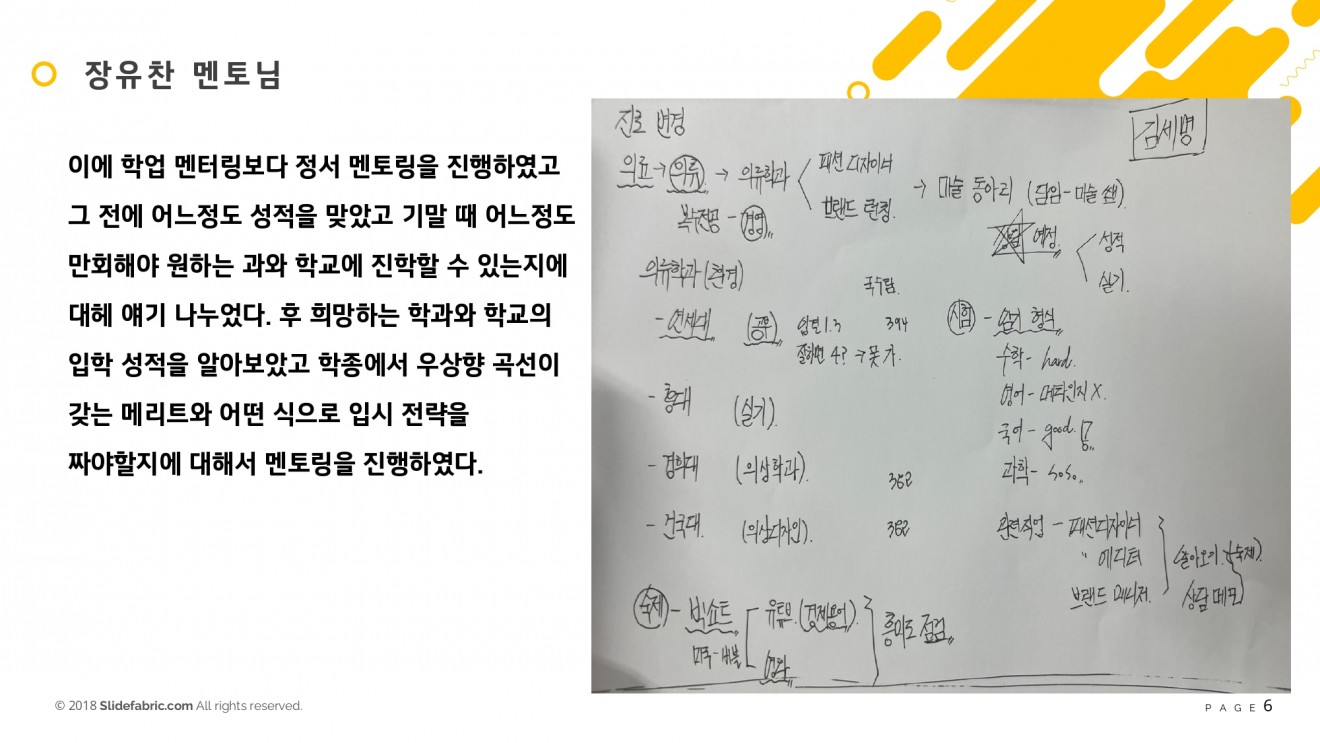 장유찬 멘토님
이에 학업 멘터링보다 정서 멘토링을 진행하였고
그 전에 어느정도 성적을 맞았고 기말 때 어느정도
만회해야 원하는 과와 학교에 진학할 수 있는지에
대헤 얘기 나누었다. 후 희망하는 학과와 학교의
입학 성적을 알아보았고 학종에서 우상향 곡선이
갖는 메리트와 어떤 식으로 입시 전략을
짜야할지에 대해서 멘토링을 진행하였다.
진로 변경
김세명
의료 → 의류 → 의류학과
패션 디자이너
브랜드 런칭.
→ 미술 동아리 (담임-미술 쌤)
복수전공 - 경영
예정
성적
실기.
의류학과 (환경)
국수탐.
- 연세대
입결 1.3 394
잘하면 4? → 못 가.
- 홍대 (실기).
- 경희대 (의상학과). 352
- 건국대. (의상디자인). 382
시험 - 암기 형식
수학 - hard.
영어 - 메타인지 X.
국어 - good.
과학 - soso.
관련직업 - 패션디자이너
" 에디터
브랜드 매니저.
(알아오기 숙제).
상담 메모
숙제 - 빅쇼트
유튜브. (경제용어).
영화
흥미도 점검
© 2018 Slidefabric.com All rights reserved.
PAGE 6